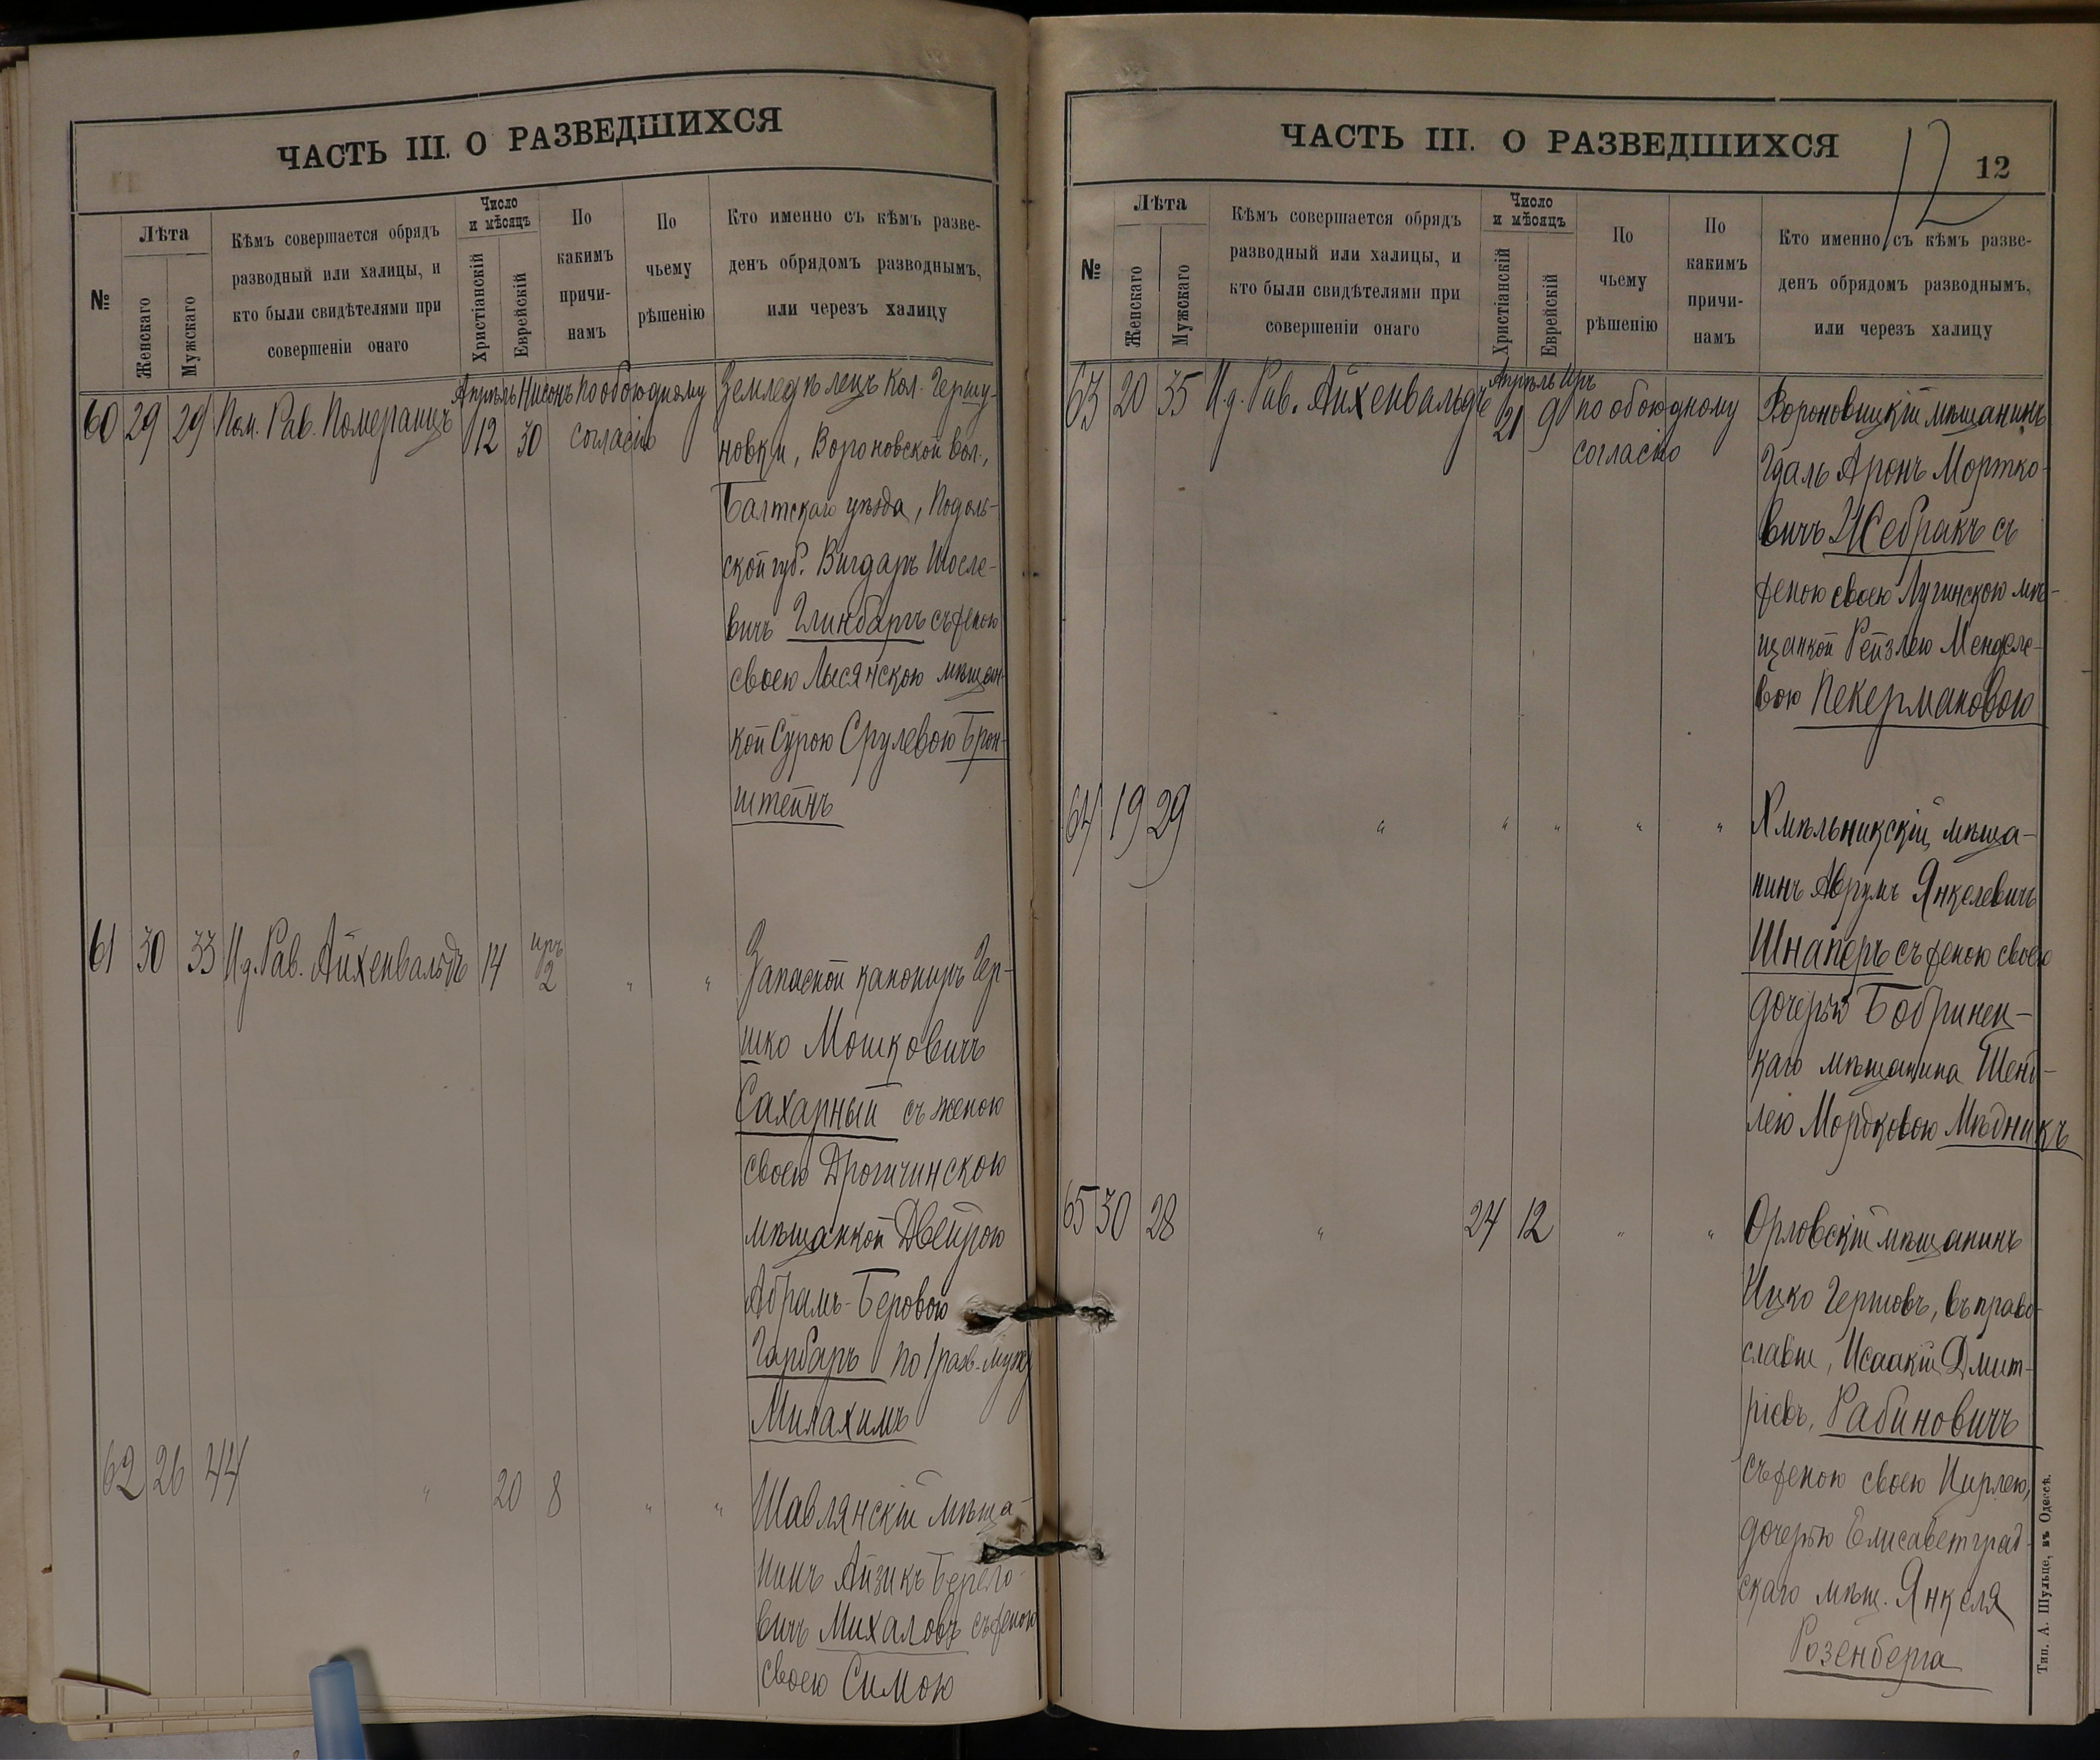 ЧАСТЬ III. О РАЗВЕДШИХСЯ
№
Лѣта
Женскаго
Мужскаго
Кѣмъ совершается обрядъ
разводный или халицы, и
кто были свидѣтелями при
совершеніи онаго
Число
и мѣсяцъ
Христіанскій
Еврейскій
По
какимъ
причи-
намъ
По
чьему
рѣшенію
Кто именно съ кѣмъ разве-
денъ обрядомъ разводнымъ,
или черезъ халицу
60 29 29 Пом. Рав. Померанцъ Апрѣль 12 Нисонъ 30 по обоюдному
согласію
Земледѣлецъ Кол. Гершу-
новки, Вороновской вол.,
Балтскаго уѣзда, Подоль-
ской губ. Вигдаръ Іосе-
вичъ Глинбаргъ съ женою
своею Лысянскою мѣщан-
кой Сурою Срулевою Брон-
штейнъ
61 30 33 И.д. Рав. Айхенвальдъ 14 Иръ 2 " "
Запасной канониръ Гер-
шко Мошковичъ
Сахарный съ женою
своею Дрогичинскою
мѣщанкой Двейрою
Абрамъ-Беровою
Гарбаръ по 1 разв. мужу
Милахимъ
62 26 44 " 20 8 " "
Шавлянскій мѣща-
нинъ Айзикъ
вичъ Михаловъ съ женою
своею Симою
ЧАСТЬ III. О РАЗВЕДШИХСЯ
12
12
№
Лѣта
Женскаго
Мужскаго
Кѣмъ совершается обрядъ
разводный или халицы, и
кто были свидѣтелями при
совершеніи онаго
Число
и мѣсяцъ
Христіанскій
Еврейскій
По
чьему
рѣшенію
По
какимъ
причи-
намъ
Кто именно съ кѣмъ разве-
денъ обрядомъ разводнымъ,
или черезъ халицу
63 20 35 И.д. Рав. Айхенвальдъ Апрѣль 21 Иръ 9 по обоюдному
согласію
Вороновицкій мѣщанинъ
Гдаль Аронъ Мортко-
вичъ Жебракъ съ
женою своею Лугинскою мѣ-
щанкой Рейзлею Менделе-
вою Пекермановою
64 19 29 " " " " "
Хмѣльникскій мѣща-
нинъ Аврумъ Янкелевичъ
Шнаперъ съ женою своею
дочерью Бобринец-
каго мѣщанина Шенд-
лею Мордковою Мѣдникъ
65 30 28 " 24 12 " "
Орловскій мѣщанинъ
Ицко Гершовъ, въ право-
славіи, Исаакій Дмит-
ріевъ, Рабиновичъ
съ женою своею Цирлею,
дочерью Елисаветград-
скаго мѣщ. Янкеля
Розенберга
Тип. А. Шульце, въ Одессѣ.